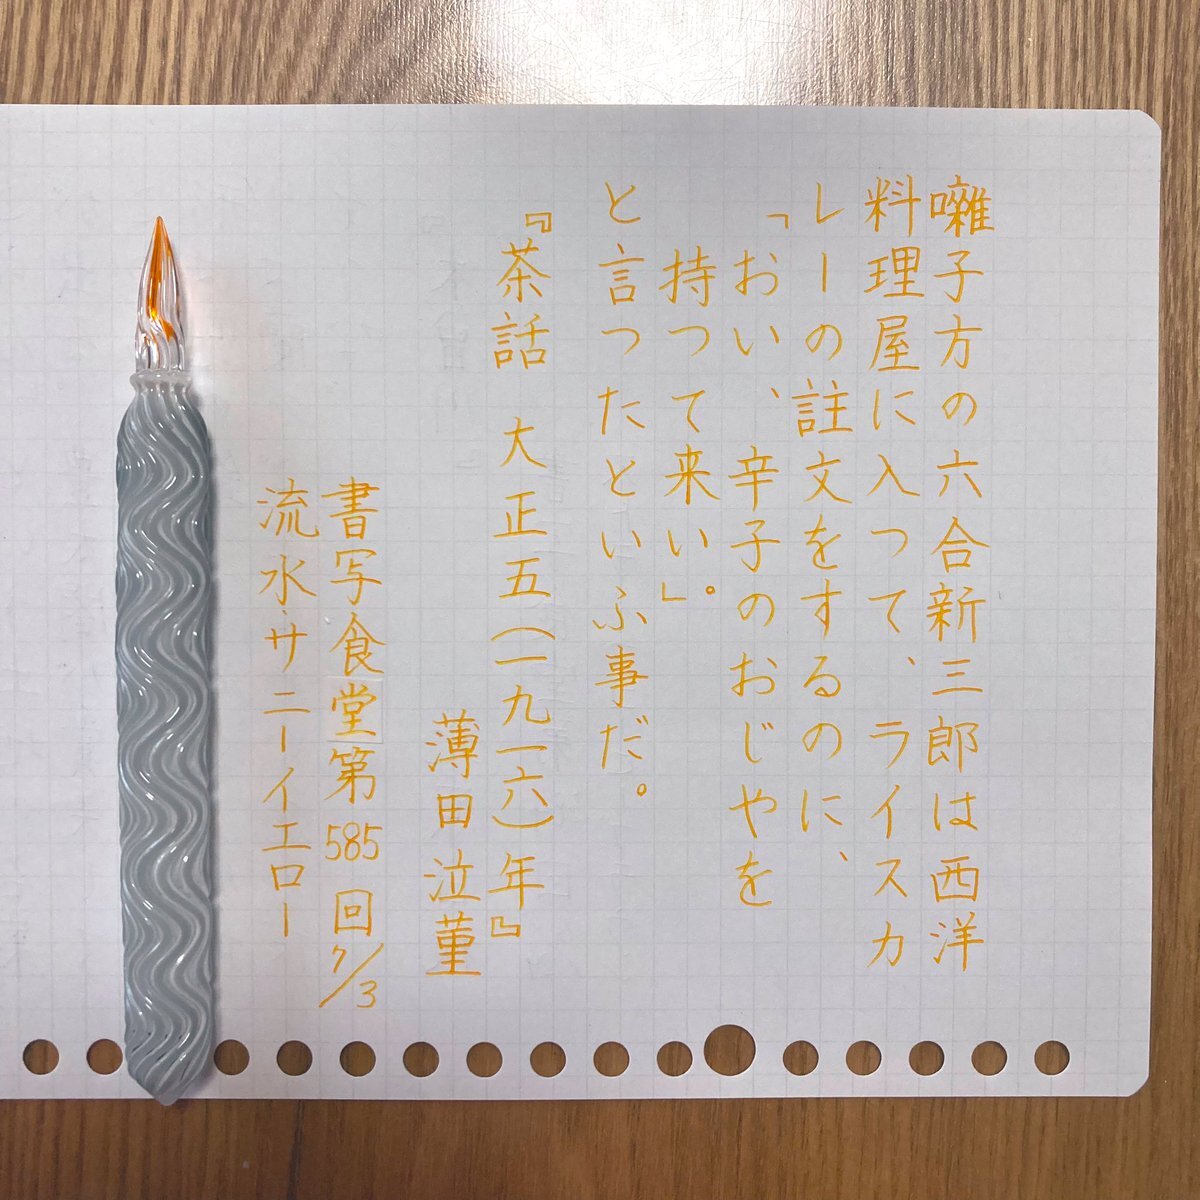 囃子方の六合新三郎は西洋
料理屋に入つて、ライスカ
レーの註文をするのに、
「おい、辛子のおじやを
持つて来い」。
と言つたといふ事だ。
『茶話 大正五(一九一六)年』
薄田泣菫
書写食堂第585回7/3
流水、サニーイエロー